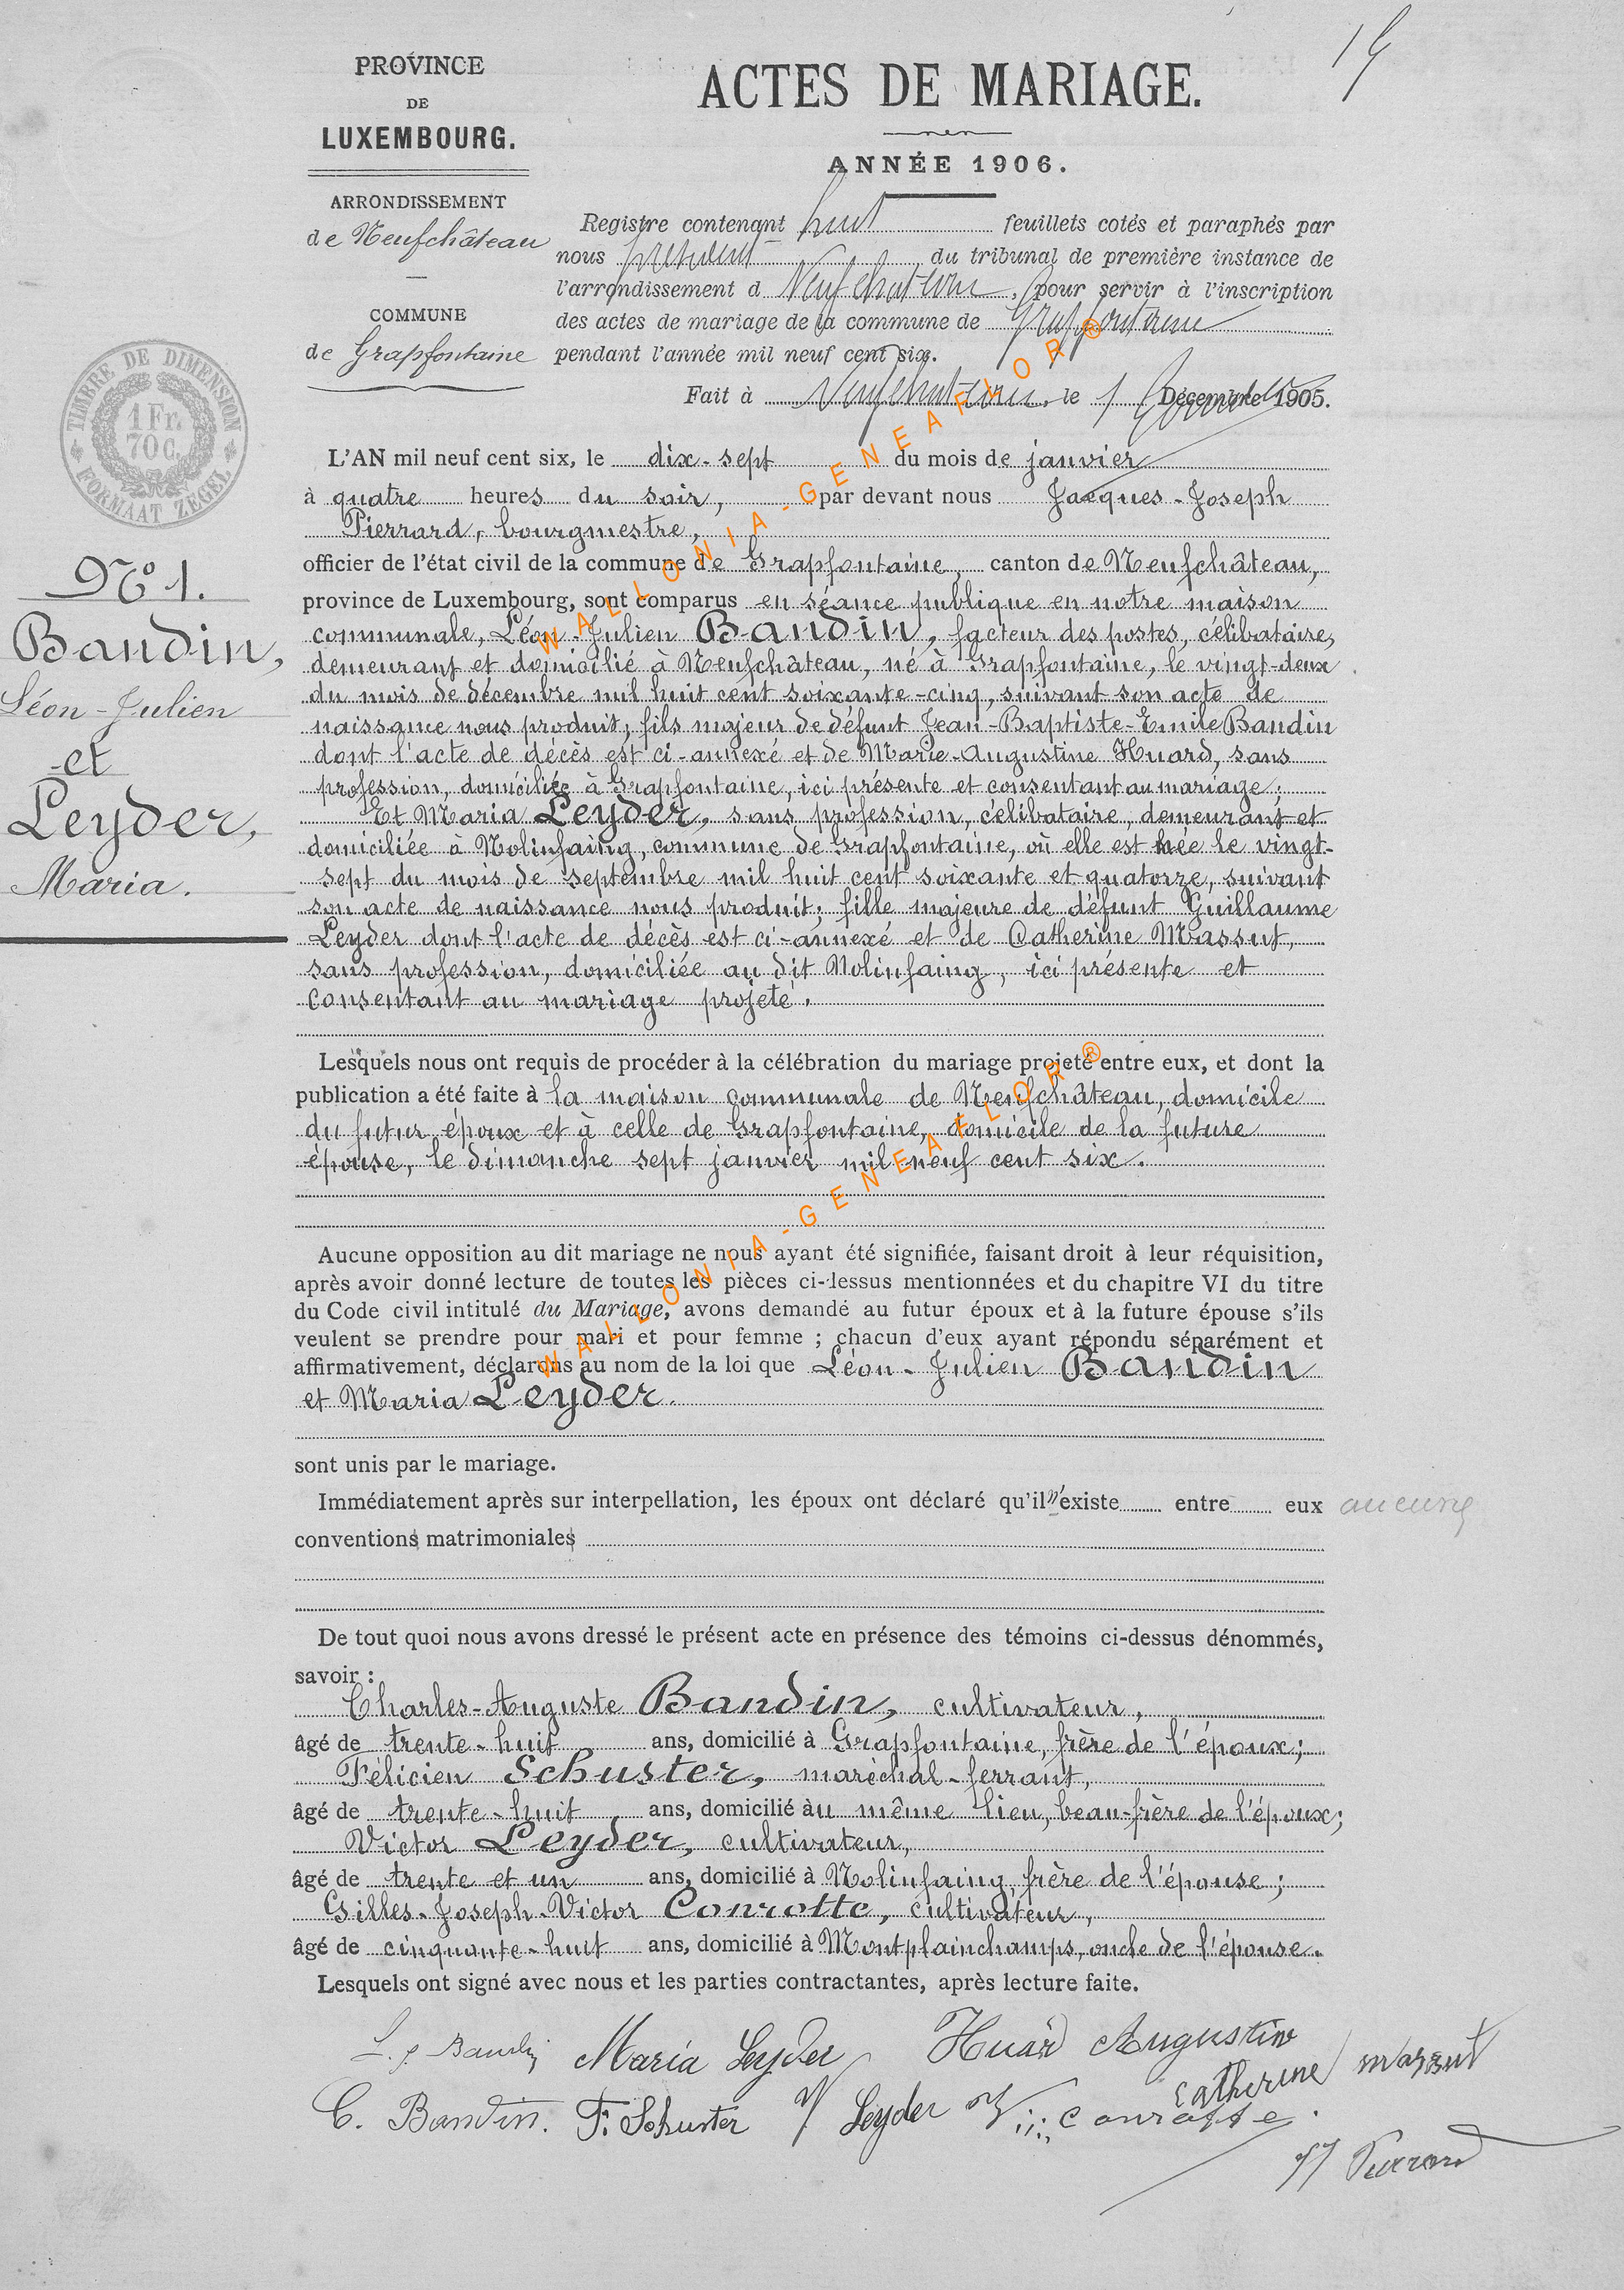 15
PROVINCE
DE
LUXEMBOURG.
ARRONDISSEMENT
de Neufchâteau
COMMUNE
de Grapfontaine
ACTES DE MARIAGE.
ANNÉE 1906.
Registre contenant huit feuillets cotés et paraphés par
nous président du tribunal de première instance de
l'arrondissement d Neufchateau, pour servir à l'inscription
des actes de mariage de la commune de Grapfontaine
pendant l'année mil neuf cent six.
Fait à Neufchateau, le 1 Décembre 1905.
TIMBRE DE DIMENSION
1 Fr.
70 C.
FORMAAT ZEGEL
No 1.
Baudin,
Léon-Julien
et
Leyder,
Maria.
L'AN mil neuf cent six, le dix-sept du mois de janvier
à quatre heures du soir, par devant nous Jacques-Joseph
Pierrard, bourgmestre,
officier de l'état civil de la commune de Grapfontaine, canton de Neufchâteau,
province de Luxembourg, sont comparus en séance publique en notre maison
communale, Léon-Julien Baudin, facteur des postes, célibataire,
demeurant et domicilié à Neufchâteau, né à Grapfontaine, le vingt-deux
du mois de décembre mil huit cent soixante-cinq, suivant son acte de
naissance nous produit; fils majeur de défunt Jean-Baptiste-Emile Baudin
dont l'acte de décès est ci-annexé et de Marie-Augustine Huard, sans
profession, domiciliée à Grapfontaine, ici présente et consentant au mariage;
Et Maria Leyder, sans profession, célibataire, demeurant et
domiciliée à Nolinfaing, commune de Grapfontaine, où elle est née le vingt-
sept du mois de septembre mil huit cent soixante et quatorze, suivant
son acte de naissance nous produit; fille majeure de défunt Guillaume
Leyder dont l'acte de décès est ci-annexé et de Catherine Massut,
sans profession, domiciliée au dit Nolinfaing, ici présente et
consentant au mariage projeté.
Lesquels nous ont requis de procéder à la célébration du mariage projeté entre eux, et dont la
publication a été faite à la maison communale de Neufchâteau, domicile
du futur époux et à celle de Grapfontaine, domicile de la future
épouse, le dimanche sept janvier mil neuf cent six.
Aucune opposition au dit mariage ne nous ayant été signifiée, faisant droit à leur réquisition,
après avoir donné lecture de toutes les pièces ci-dessus mentionnées et du chapitre VI du titre
du Code civil intitulé du Mariage, avons demandé au futur époux et à la future épouse s'ils
veulent se prendre pour mari et pour femme ; chacun d'eux ayant répondu séparément et
affirmativement, déclarons au nom de la loi que Léon-Julien Baudin
et Maria Leyder.
sont unis par le mariage.
Immédiatement après sur interpellation, les époux ont déclaré qu'il n'existe entre eux aucune
conventions matrimoniales
De tout quoi nous avons dressé le présent acte en présence des témoins ci-dessus dénommés,
savoir :
Charles-Auguste Baudin, cultivateur,
âgé de trente-huit ans, domicilié à Grapfontaine, frère de l'époux;
Félicien Schuster, maréchal-ferrant,
âgé de trente-huit ans, domicilié au même lieu, beau-frère de l'époux;
Victor Leyder, cultivateur,
âgé de trente et un ans, domicilié à Nolinfaing, frère de l'épouse;
Gilles-Joseph-Victor Conrotte, cultivateur,
âgé de cinquante-huit ans, domicilié à Montplainchamps, oncle de l'épouse.
Lesquels ont signé avec nous et les parties contractantes, après lecture faite.
L. J. Baudin Maria Leyder Huard Augustine
Catherine massut
C. Baudin. F. Schuster V Leyder V Conrotte
JJ Pierrard
WALLONIA-GENEAFLOR®
WALLONIA-GENEAFLOR®